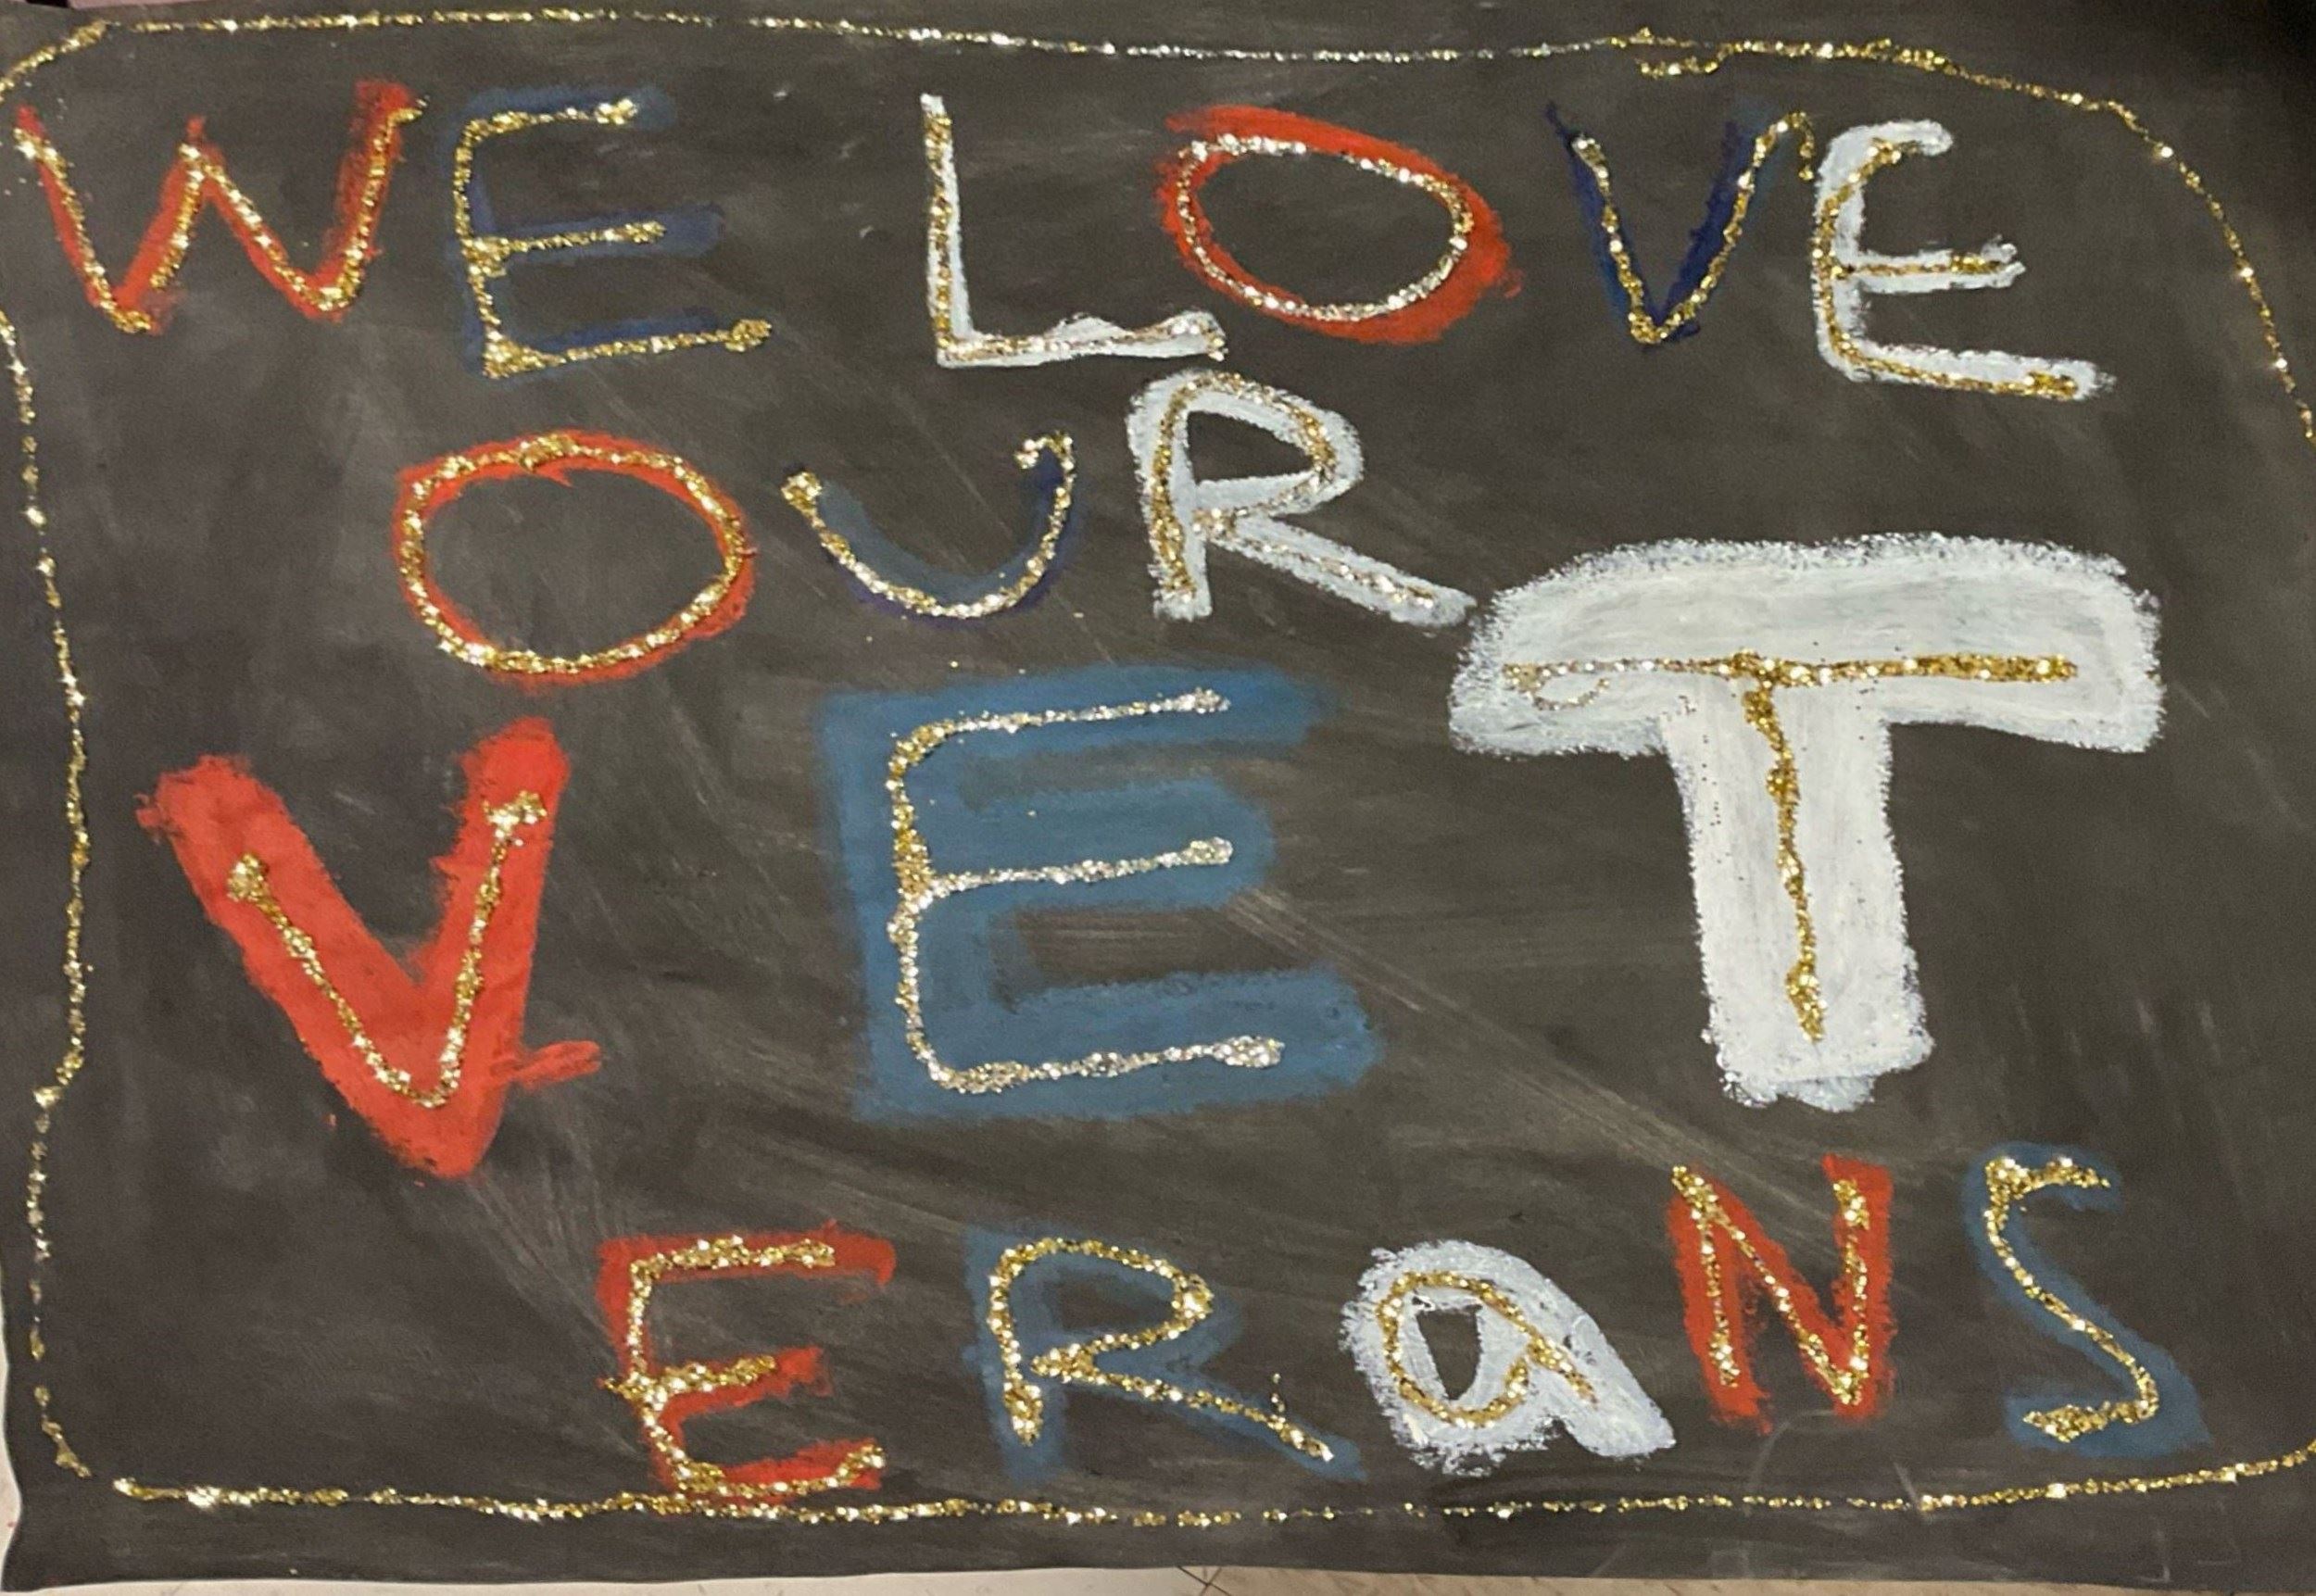 WE LOVE
OUR
VET
ERaNS